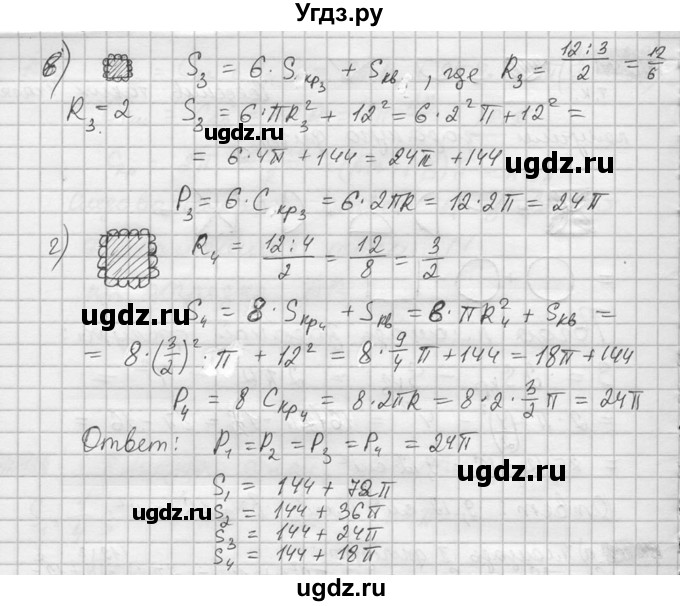 Угдз.ру
в) S₃ = 6 · Sкр₃ + Sкв., где R₃ = (12:3)/2 = 12/6
R₃ = 2 S₃ = 6 · πR₃² + 12² = 6 · 2²π + 12² =
ugdz.ru
= 6 · 4π + 144 = 24π + 144
ugdz.ru
P₃ = 6 · Cкр₃ = 6 · 2πR = 12 · 2π = 24π
ugdz.ru
г) R₄ = (12:4)/2 = 12/8 = 3/2
ugdz.ru
S₄ = 8 · Sкр₄ + Sкв = 8 · πR₄² + Sкв =
ugdz.ru
= 8 · (3/2)² · π + 12² = 8 · 9/4 π + 144 = 18π + 144
P₄ = 8 Cкр₄ = 8 · 2πR = 8 · 2 · 3/2 π = 24π
ugdz.ru
Ответ: P₁ = P₂ = P₃ = P₄ = 24π
ugdz.ru
S₁ = 144 + 72π
S₂ = 144 + 36π
ugdz.ru
ugdz.ru
S₃ = 144 + 24π
S₄ = 144 + 18π
ugdz.ru